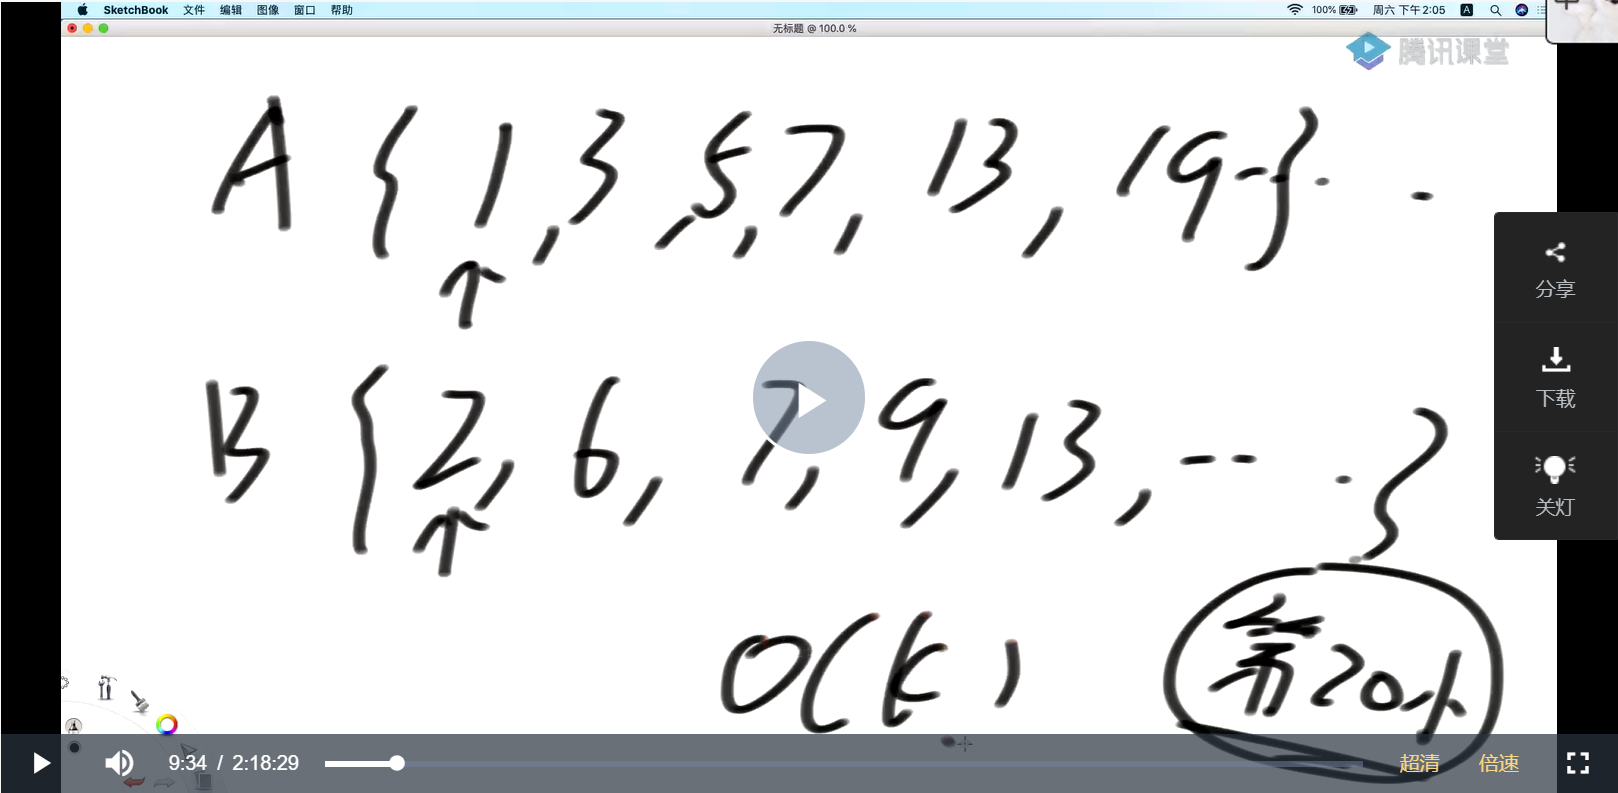 SketchBook 文件 编辑 图像 窗口 帮助 100% 周六 下午2:05 A
无标题 @ 100.0 %
腾讯课堂
A { 1, 3, 5, 7, 13, 19--} · -
↑
分享
B { 2, 6, 7, 9, 13, -- · }
↑
下载
关灯
O(k)
第20小
9:34 / 2:18:29 超清 倍速